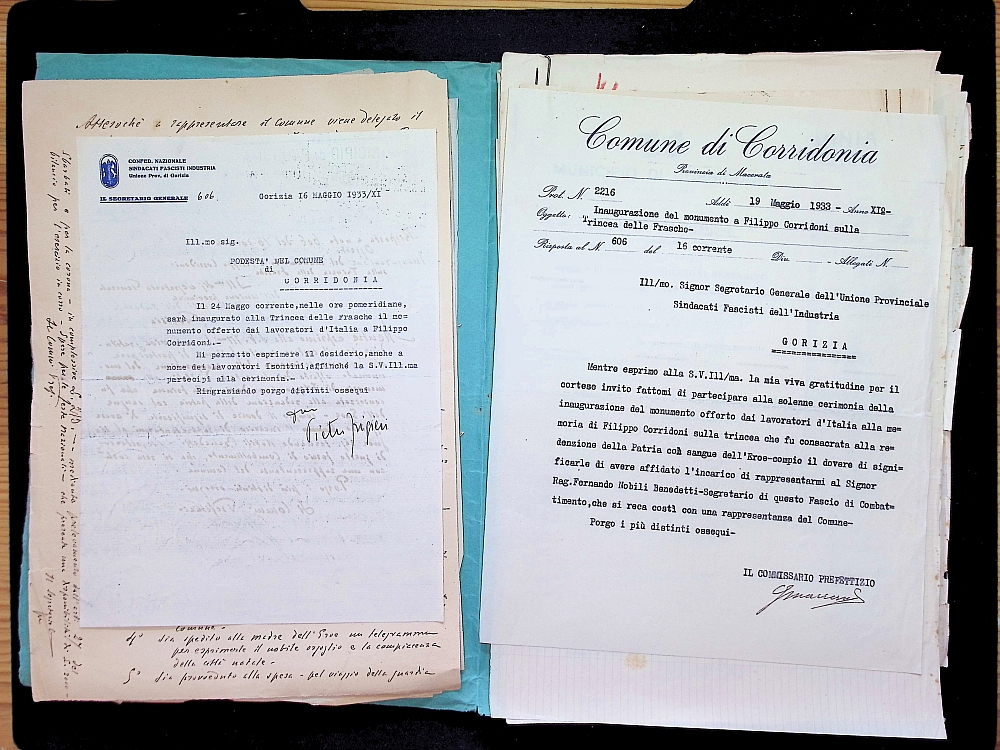 Attesochè a rappresentare il Comune viene delegato il
CONFED. NAZIONALE
SINDACATI FASCISTI INDUSTRIA
Unione Prov. di Gorizia
IL SEGRETARIO GENERALE 606
Gorizia 16 MAGGIO 1933/XI
Ill.mo sig.
PODESTA' DEL COMUNE
di
CORRIDONIA
Il 24 Maggo corrente,nelle ore pomeridiane,
sarà inaugurato alla Trincea delle Frasche il mo=
numento offerto dai lavoratori d'Italia a Filippo
Corridoni.-
Mi permetto esprimere il desiderio,anche a
nome dei lavoratori Isontini,affinchè la S.V.Ill.ma
partecipi alla cerimonia.-
Ringraziando porgo distinti ossequi
Comune -
4° Sia spedito alla madre dell'Eroe un telegramma
per esprimerle il nobile orgoglio e la compiacenza
della città natale -
5° Sia provveduto alla spesa - pel viaggio della guardia
Comune di Corridonia
Provincia di Macerata
Prot. N. 2216
Addì 19 Maggio 1933 - Anno XI°-
Oggetto: Inaugurazione del monumento a Filippo Corridoni sulla
Trincea delle Frasche-
Risposta al N. 606 del 16 corrente Div. - Allegati N.
Ill/mo. Signor Segretario Generale dell'Unione Provinciale
Sindacati Fascisti dell'Industria
GORIZIA
Mentre esprimo alla S.V.Ill/ma. la mia viva gratitudine per il
cortese invito fattomi di partecipare alla solenne cerimonia della
inaugurazione del monumento offerto dai lavoratori d'Italia alla me=
moria di Filippo Corridoni sulla trincea che fu consacrata alla re=
denzione della Patria col sangue dell'Eroe-compio il dovere di signi=
ficarle di avere affidato l'incarico di rappresentarmi al Signor
Rag.Fernando Nobili Benedetti-Segretario di questo Fascio di Combat=
timento,che si reca costì con una rappresentanza del Comune-
Porgo i più distinti ossequi-
IL COMMISSARIO PREFETTIZIO